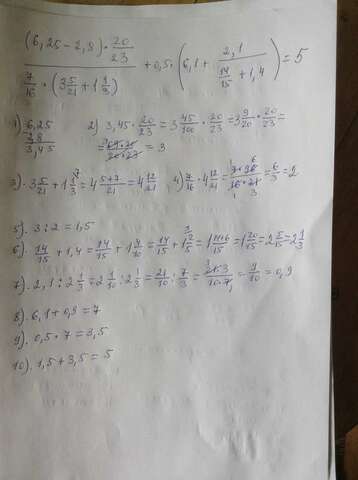 (6,25 - 2,8) · 20/23
7/16 · (3 5/21 + 1 1/3) + 0,5 · (6,1 + 2,1 / (14/15 + 1,4)) = 5
1) 6,25
2,8
3,45
2) 3,45 · 20/23 = 3 45/100 · 20/23 = 3 9/20 · 20/23 =
= 69·20/20·23 = 3
3) · 3 5/21 + 1 1/3 = 4 5+7/21 = 4 12/21
4) 7/16 · 4 12/21 = 7·96/16·21 = 6/3 = 2
5) · 3 : 2 = 1,5
6) · 14/15 + 1,4 = 14/15 + 1 4/10 = 14/15 + 1 2/5 = 1 14+6/15 = 1 20/15 = 2 5/15 = 2 1/3
7) · 2,1 : 2 1/3 = 2 1/10 : 2 1/3 = 21/10 : 7/3 = 21·3/10·7 = 9/10 = 0,9
8) · 6,1 + 0,9 = 7
9) · 0,5 · 7 = 3,5
10) · 1,5 + 3,5 = 5